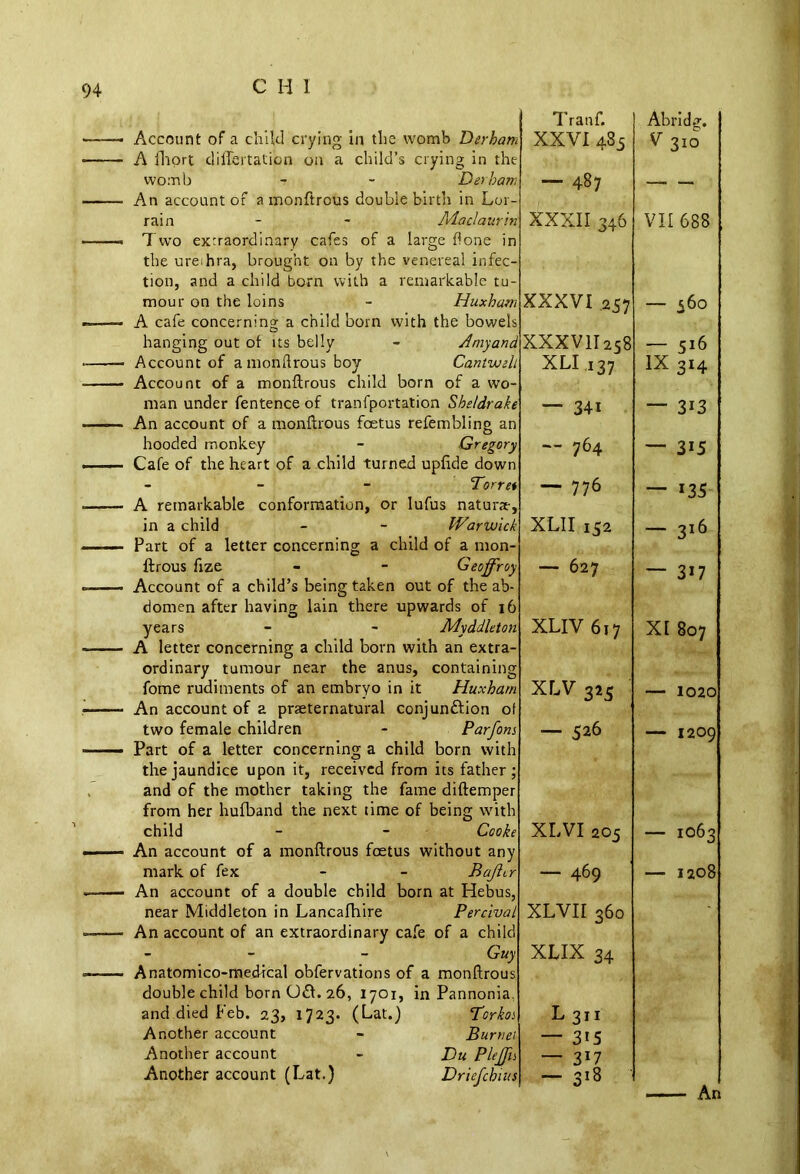 94 C H I
Tranſ. Abridg.
—— Account of a child crying in the womb Derham XXVI 485 V 310
—— A ſhort diſſertation on a child's crying in the
womb - - Derham — 487 — —
—— An account of a monſtrous double birth in Lor-
rain - - Maclaurin XXXII 346 VII 688
—— Two extraordinary caſes of a large ſtone in
the urethra, brought on by the venereal infec-
tion, and a child born with a remarkable tu-
mour on the loins - Huxham XXXVI 257 — 560
—— A caſe concerning a child born with the bowels
hanging out of its belly - Amyand XXXVII 258 — 516
—— Account of a monſtrous boy Cantwell XLI 137 IX 314
—— Account of a monſtrous child born of a wo-
man under ſentence of tranſportation Sheldrake — 341 — 313
—— An account of a monſtrous fœtus reſembling an
hooded monkey - Gregory — 764 — 315
—— Caſe of the heart of a child turned upſide down
- - - Torres — 776 — 135
—— A remarkable conformation, or luſus naturæ,
in a child - - Warwick XLII 152 — 316
—— Part of a letter concerning a child of a mon-
ſtrous ſize - - Geoffroy — 627 — 317
—— Account of a child's being taken out of the ab-
domen after having lain there upwards of 16
years - - Myddleton XLIV 617 XI 807
—— A letter concerning a child born with an extra-
ordinary tumour near the anus, containing
ſome rudiments of an embryo in it Huxham XLV 325 — 1020
—— An account of a præternatural conjunction of
two female children - Parſons — 526 — 1209
—— Part of a letter concerning a child born with
the jaundice upon it, received from its father;
and of the mother taking the ſame diſtemper
from her huſband the next time of being with
child - - Cooke XLVI 205 — 1063
—— An account of a monſtrous fœtus without any
mark of ſex - - Baſter — 469 — 1208
—— An account of a double child born at Hebus,
near Middleton in Lancaſhire Percival XLVII 360
—— An account of an extraordinary caſe of a child
- - - Guy XLIX 34
—— Anatomico-medical obſervations of a monſtrous
double child born Oct. 26, 1701, in Pannonia,
and died Feb. 23, 1723. (Lat.) Torkos L 311
Another account - Burnet — 315
Another account - Du Pleſſis — 317
Another account (Lat.) Drieſchius — 318
—— An